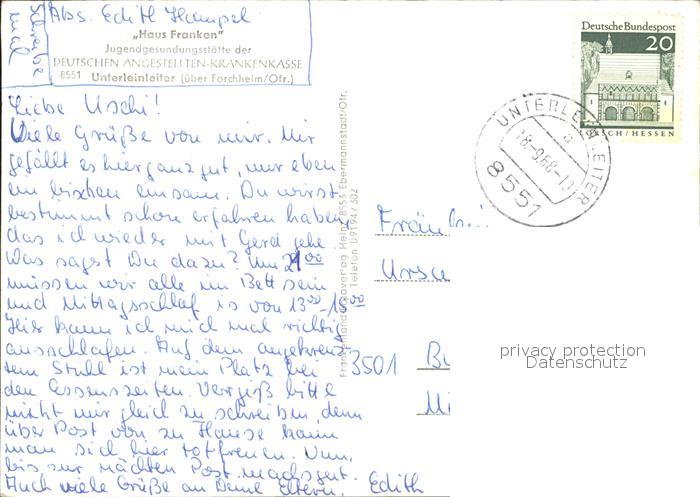 Schreibe mal
Abs. Edith Hampel
„Haus Franken"
Jugendgesundungsstätte der
DEUTSCHEN ANGESTELLTEN-KRANKENKASSE
8551 Unterleinleiter (über Forchheim/Ofr.)
Liebe Uschi!
Viele Grüße von mir. Mir
gefällt es hier ganz gut, nur eben
ein bischen einsam. Du wirst
bestimmt schon erfahren haben,
das ich wieder mit Gerd gehe.
Was sagst Du dazu? Um 21⁰⁰
müssen wir alle im Bett sein
und Mittagsschlaf is von 13⁰⁰-15⁰⁰
Hier kann ich mich mal richtig
ausschlafen. Auf dem angekreuz-
tem Stuhl ist mein Platz bei
den Essenszeiten. Vergiß bitte
nicht mir gleich zu schreiben, denn
über Post von zu Hause kann
man sich hier totfreuen. Nun,
bis zur nächten Post machs gut.
Auch viele Grüße an Deine Eltern. Edith
Ebermannstadt/Ofr.
Telefon 09194/302
Deutsche Bundespost
20
LORSCH/HESSEN
UNTERLEINLEITER
a
18.-9.68-17
8551
Fräul
Ursu
3501 Bu
privacy protection
Datenschutz